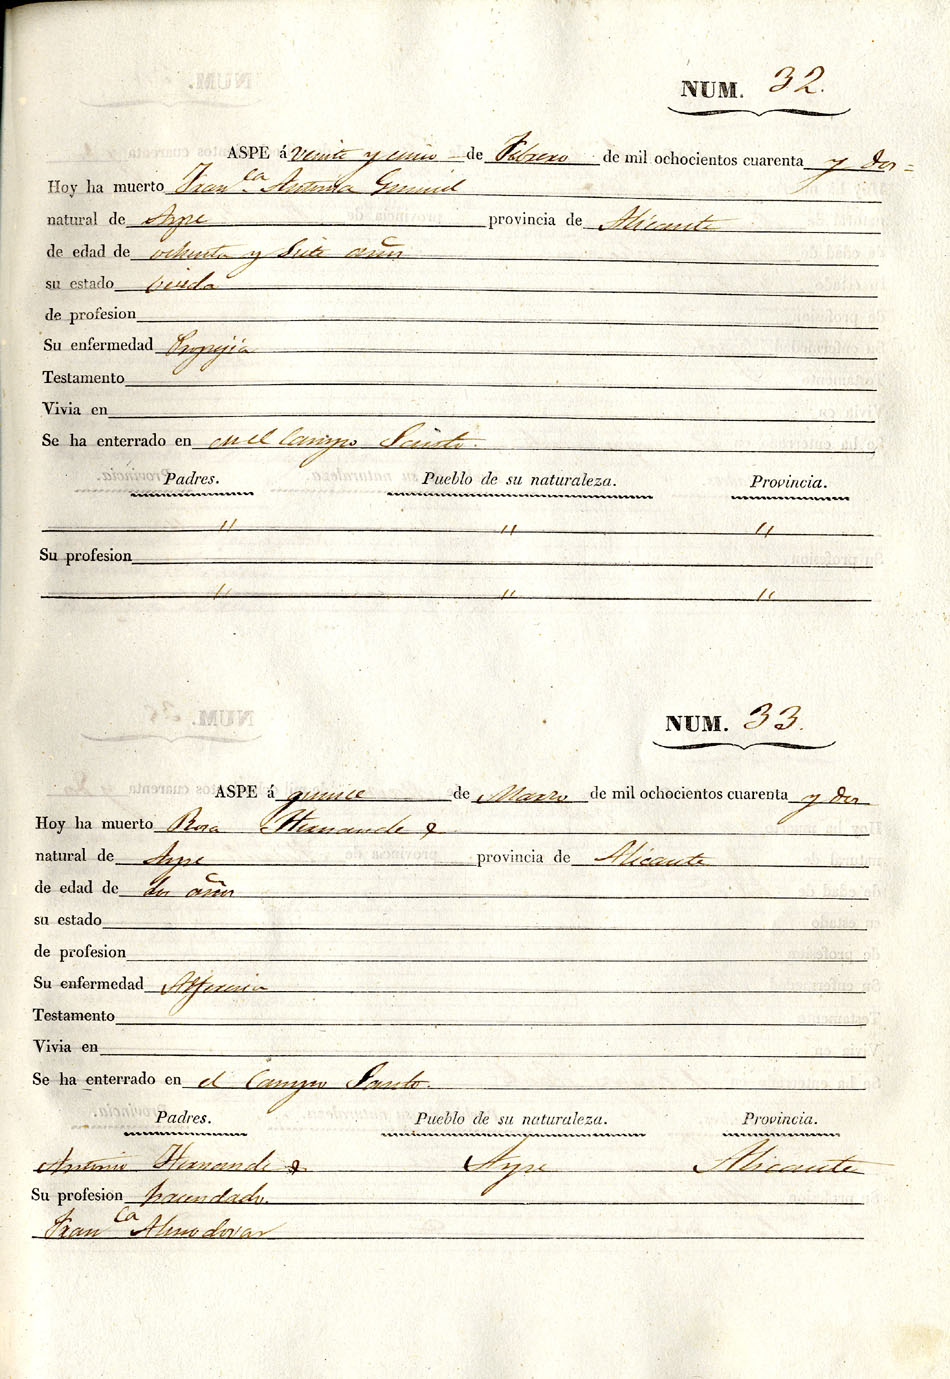 NUM. 32.
ASPE á veinte y cinco de Febrero de mil ochocientos cuarenta y dos=
Hoy ha muerto Fran.ca Antonia
natural de Aspe provincia de Alicante
de edad de ochenta y siete años
su estado viuda
de profesion
Su enfermedad
Testamento
Vivia en
Se ha enterrado en en el Campo Santo.
Padres. Pueblo de su naturaleza. Provincia.
" " "
Su profesion
" " "
NUM. 33.
ASPE á quince de Marzo de mil ochocientos cuarenta y dos
Hoy ha muerto Rosa Hernandez
natural de Aspe provincia de Alicante
de edad de dos años
su estado
de profesion
Su enfermedad Alferecia
Testamento
Vivia en
Se ha enterrado en el Campo Santo.
Padres. Pueblo de su naturaleza. Provincia.
Antonio Hernandez Aspe Alicante
Su profesion hacendado.
Fran.ca Almodovar